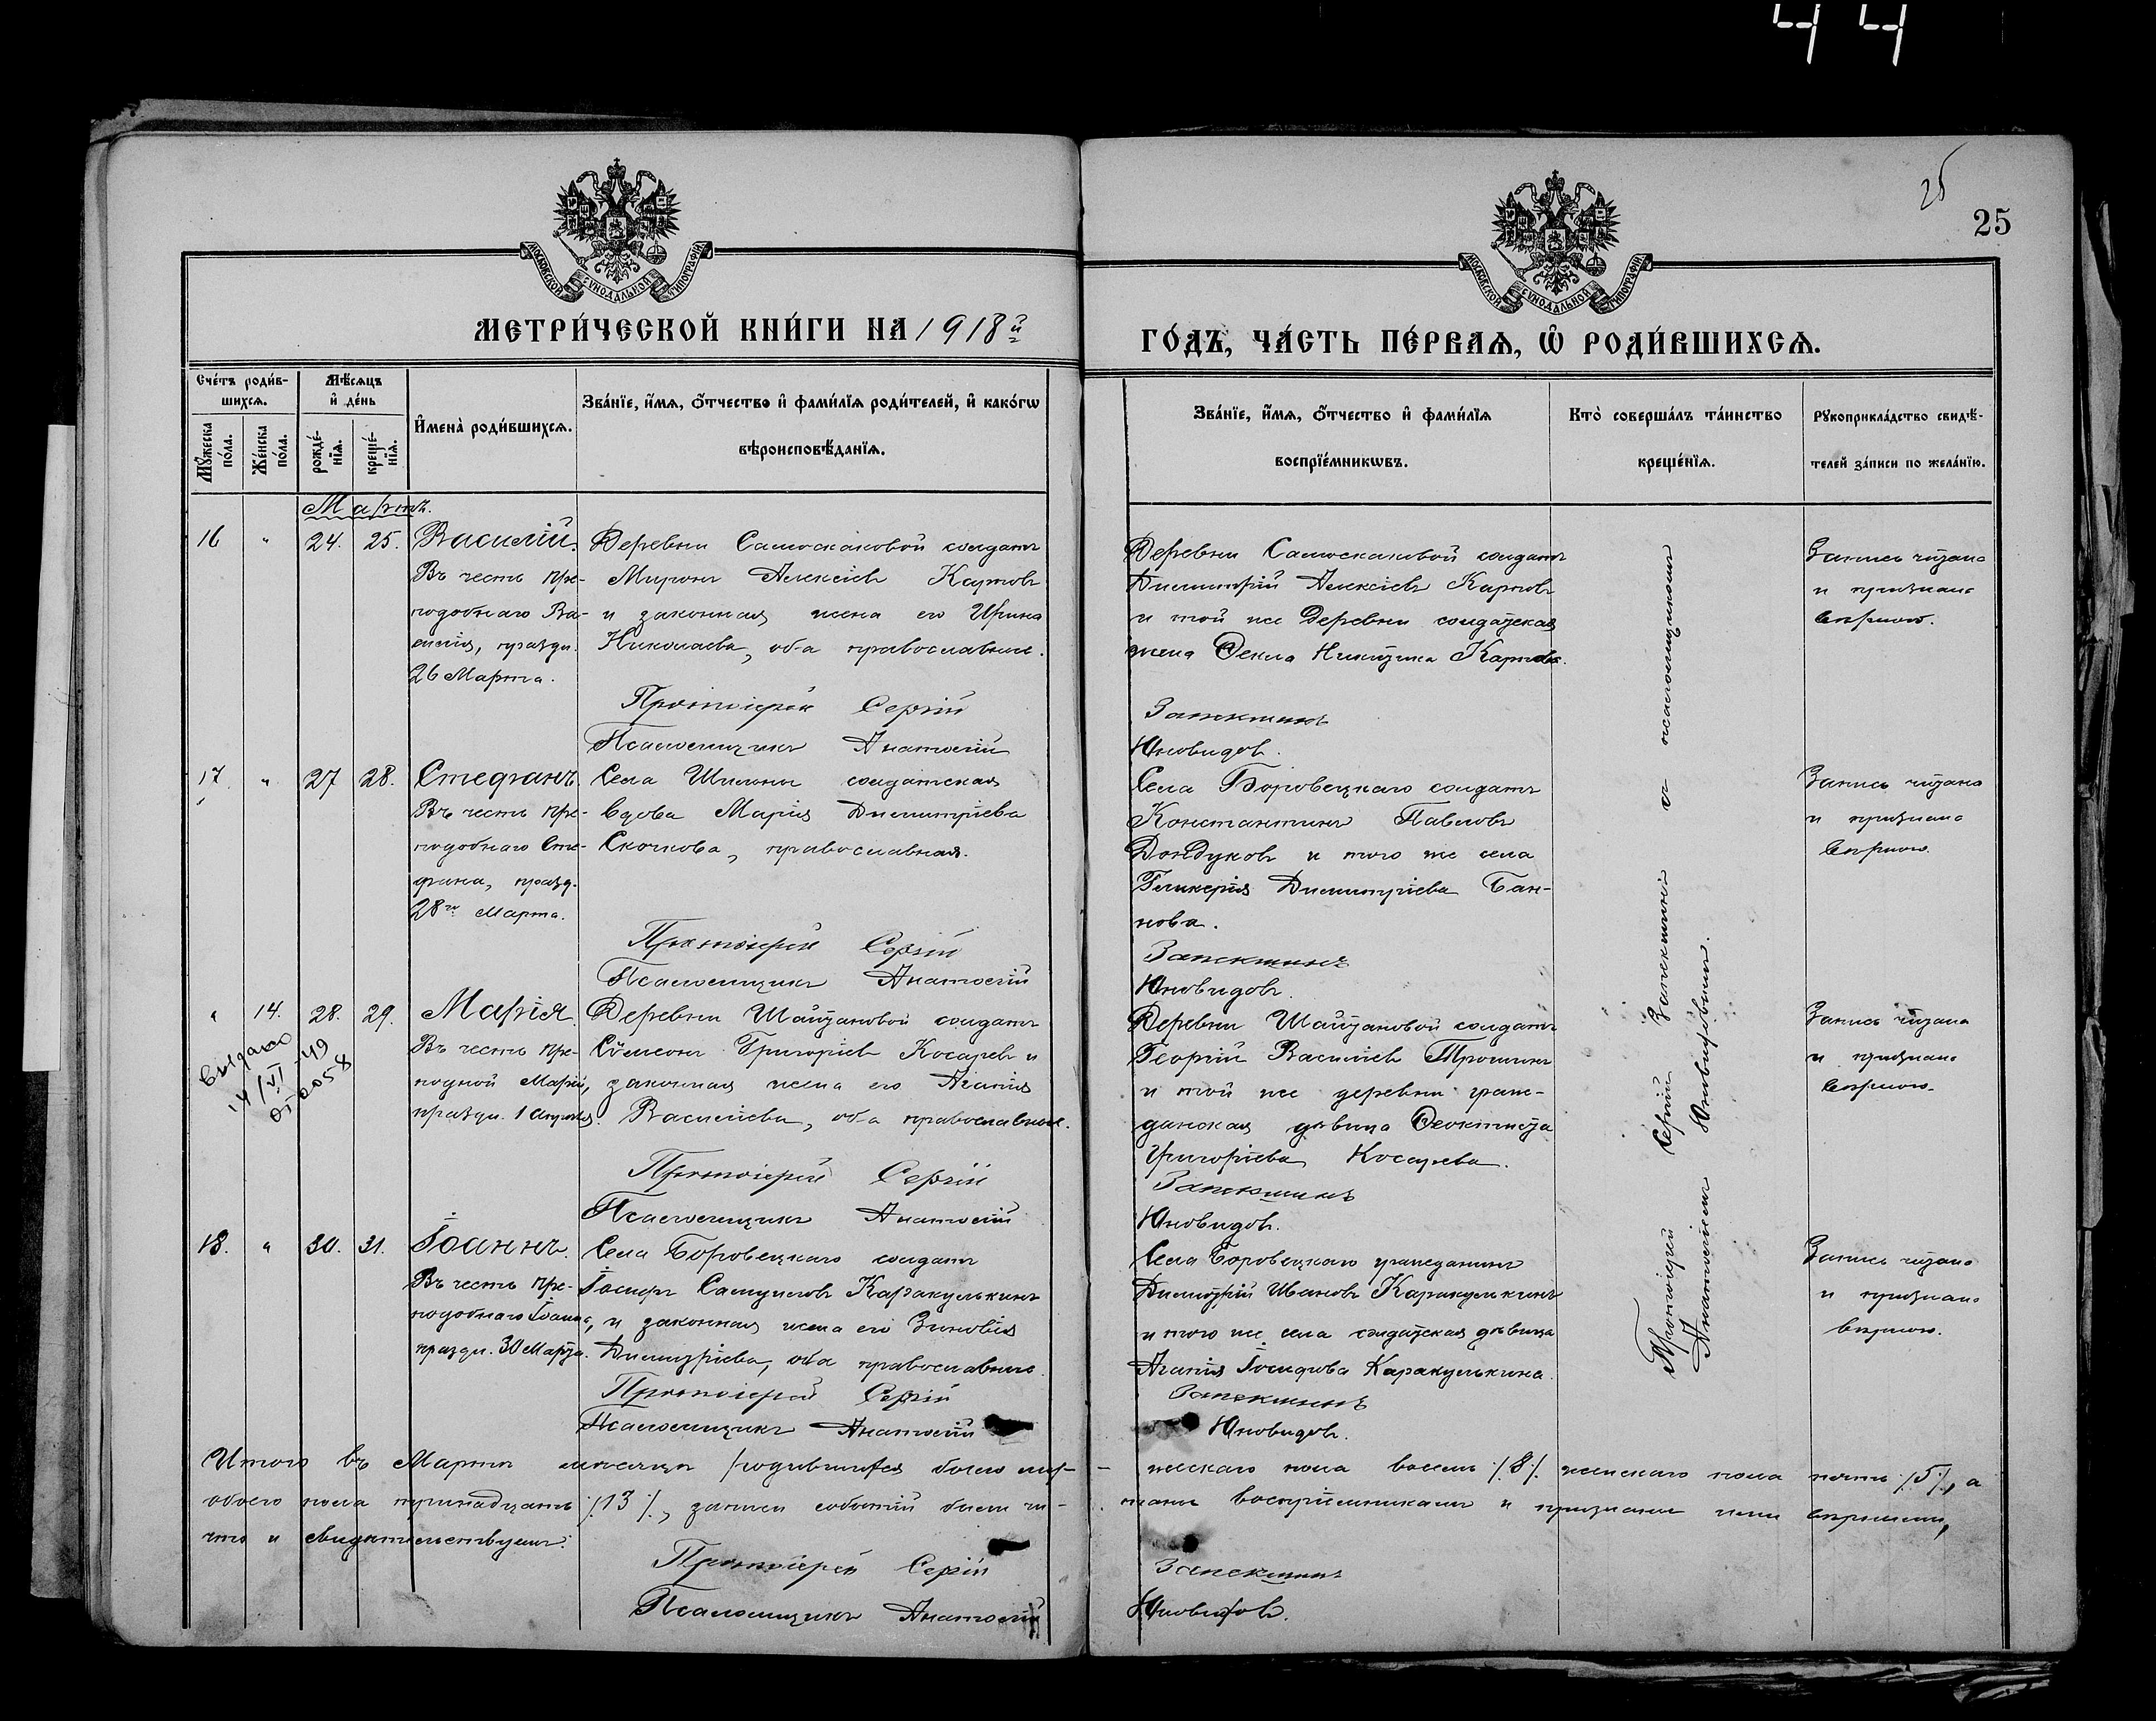 44
25
25
МОСКОВСКОЙ СУНОДАЛЬНОЙ ТИПОГРАФІИ
МОСКОВСКОЙ СУНОДАЛЬНОЙ ТИПОГРАФІИ
МЕТРИ́ЧЕСКОЙ КНИ́ГИ НА 1918й
ГО́ДЪ, ЧА́СТЬ ПЕ́РВАѦ, Ѡ҆ РОДИ́ВШИХСѦ.
Сче́тъ роди́в-
шихсѧ.
Мѣ́сѧцъ
и҆ де́нь
Мꙋ́жеска
по́ла.
Же́нска
по́ла.
рожде́-
нїѧ.
креще́-
нїѧ.
И҆мена̀ роди́вшихсѧ.
Зва́нїе, и҆́мѧ, ѻ҆́тчество и҆ фами́лїѧ роди́телей, и҆ како́гѡ
вѣроисповѣ́данїѧ.
Зва́нїе, и҆́мѧ, ѻ҆́тчество и҆ фами́лїѧ
воспрїе́мникѡвъ.
Кто̀ соверша́лъ та́инство
креще́нїѧ.
Рꙋкоприкла́дство свидѣ́-
телей за́писи по жела́нїю.
Мартъ.
16 " 24. 25. Василій.
Въ честь пре-
подобнаго Ва-
силія, праздн.
26 Марта.
Деревни Самоскаковой солдатъ
Миронъ Алексіевъ Карповъ
и законная жена его Ирина
Николаева, оба православные.
Протоіерей Сергій
Псаломщикъ Анатолій
Деревни Самоскаковой солдатъ
Димитрій Алексіевъ Карповъ
и той же деревни солдатская
жена Ѳекла Никитина Карпова.
Запекшинъ
Юновидовъ.
Запись читана
и признана
вѣрною.
17. " 27 28. Стефанъ.
Въ честь пре-
подобнаго Сте-
фана, празд.
28го Марта.
Села Шильны солдатская
вдова Марія Димитріева
Скочкова, православная.
Протоіерей Сергій
Псаломщикъ Анатолій
Села Боровецкаго солдатъ
Константинъ Павловъ
Дондуковъ и того же села
Гликерія Димитріева Бан-
нова.
Запекшинъ
Юновидовъ.
Запись читана
и признана
вѣрною.
" 14. 28. 29. Марія.
Въ честь пре-
подной Маріи,
праздн. 1 апрѣля.
14/VI-49
Деревни Шайтановой солдатъ
Сѵмеонъ Григоріевъ Косаревъ и
законная жена его Агапія
Василіева, оба православные.
Протоіерей Сергій
Псаломщикъ Анатолій
Деревни Шайтановой солдатъ
Георгій Василіевъ Трошинъ
и той же деревни граж-
данская дѣвица Ѳеоктиста
Григоріева Косарева.
Запекшинъ
Юновидовъ.
Запись читана
и признана
вѣрною.
18. " 30. 31. Іоаннъ.
Въ честь пре-
подобнаго Іоанна,
праздн. 30 Марта.
Села Боровецкаго солдатъ
Іосифъ Самуиловъ Каракулькинъ
и законная жена его Зиновія
Димитріева, оба православные.
Протоіерей Сергій
Псаломщикъ Анатолій
Села Боровецкаго гражданинъ
Димитрій Ивановъ Каракулькинъ
и того же села солдатская дѣвица
Агапія Іосифова Каракулькина.
Запекшинъ
Юновидовъ.
Запись читана
и признана
вѣрною.
Протоіерей Сергій Запекшинъ съ псаломщикомъ
Анатоліемъ Юновидовымъ.
Итого въ Мартѣ мѣсяцѣ родившихся было муж-
жескаго пола восемь /.8./. женскаго пола пять /.5./., а
обоего пола тринадцать /.13./., записи событій были чи-
таны воспріемниками и признаны ими вѣрными,
что и свидѣтельствуемъ:
Протоіерей Сергій Запекшинъ
Псаломщикъ Анатолій Юновидовъ.